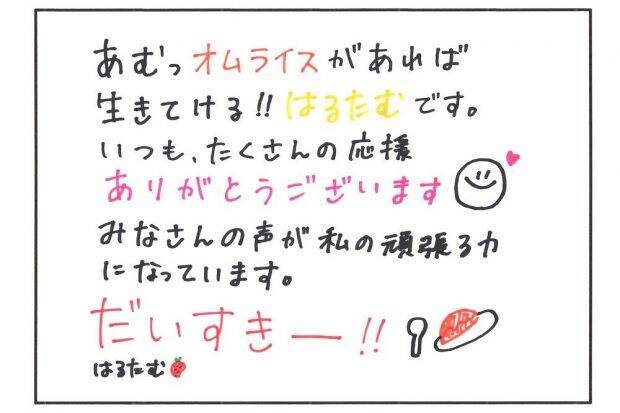 あむっオムライスがあれば
生きてける!!はるたむです。
いつも、たくさんの応援
ありがとうございます
みなさんの声が私の頑張る力
になっています。
だいすきー!!
はるたむ